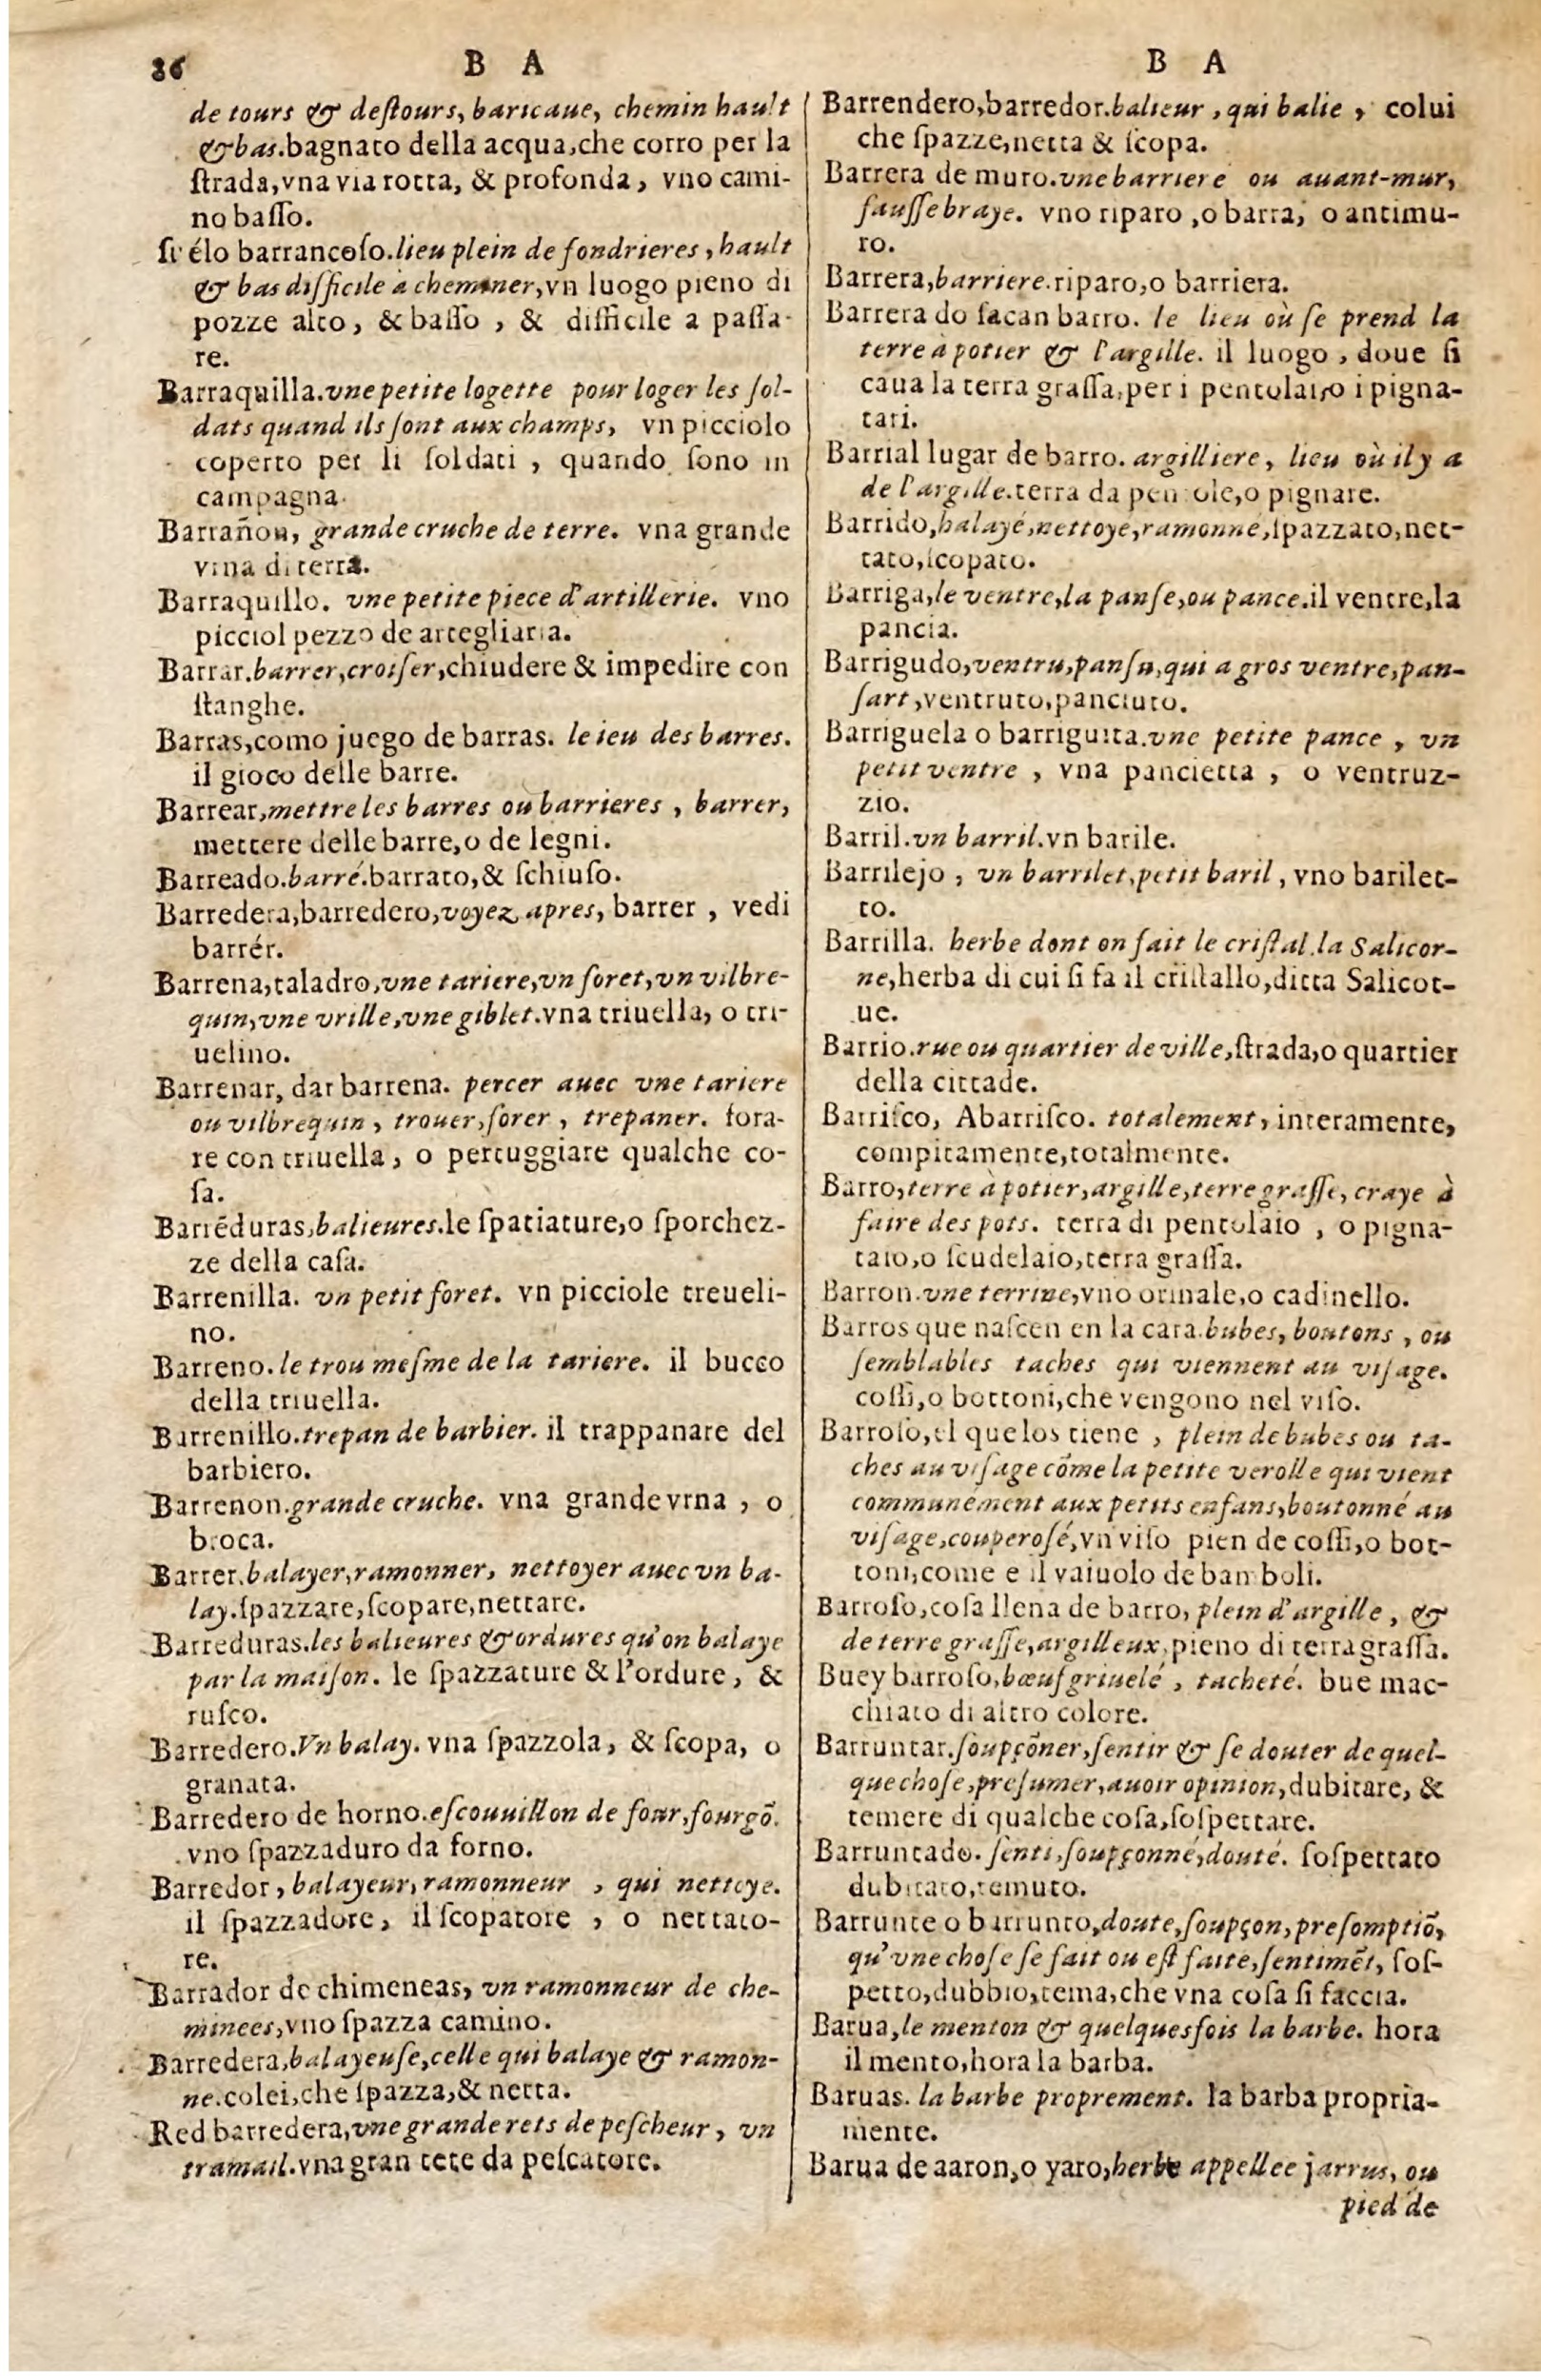 86
B A
de tours & deſtours, baricaue, chemin hault
& bas. bagnato della acqua, che corro per la
ſtrada, vna via rotta, & profonda, vno cami-
no baſſo.
élo barrancoſo. lieu plein de fondrieres, hault
& bas difficile à cheminer, vn luogo pieno di
pozze alto, & baſſo, & difficile a paſſa-
re.
Barraquilla. vne petite logette pour loger les ſol-
dats quand ils ſont aux champs, vn picciolo
coperto per li ſoldati, quando ſono in
campagna.
Barrañon, grande cruche de terre. vna grande
vrna di terra.
Barraquillo. vne petite piece d'artillerie. vno
picciol pezzo de artegliaria.
Barrar. barrer, croiſer, chiudere & impedire con
ſtanghe.
Barras, como juego de barras. le ieu des barres.
il gioco delle barre.
Barrear, mettre les barres ou barrieres, barrer,
mettere delle barre, o de legni.
Barreado. barré. barrato, & ſchiuſo.
Barredera, barredero, voyez apres, barrer, vedi
barrér.
Barrena, taladro, vne tariere, vn foret, vn vilbre-
quin, vne vrille, vne giblet. vna triuella, o tri-
uelino.
Barrenar, dar barrena. percer auec vne tariere
ou vilbrequin, trouer, forer, trepaner. fora-
re con triuella, o pertuggiare qualche co-
ſa.
Barrēduras, balieures. le ſpatiature, o ſporchez-
ze della caſa.
Barrenilla. vn petit foret. vn picciole treueli-
no.
Barreno. le trou meſme de la tariere. il bucco
della triuella.
Barrenillo. trepan de barbier. il trappanare del
barbiero.
Barrenon. grande cruche. vna grande vrna, o
broca.
Barrer, balayer, ramonner, nettoyer auec vn ba-
lay. ſpazzare, ſcopare, nettare.
Barreduras. les balieures & ordures qu'on balaye
par la maiſon. le ſpazzature & l'ordure, &
ruſco.
Barredero. Vn balay. vna ſpazzola, & ſcopa, o
granata.
Barredero de horno. eſcouuillon de four, fourgō.
vno ſpazzaduro da forno.
Barredor, balayeur, ramonneur, qui nettoye.
il ſpazzadore, il ſcopatore, o nettato-
re.
Barrador de chimeneas, vn ramonneur de che-
minees, vno ſpazza camino.
Barredera, balayeuſe, celle qui balaye & ramon-
ne. colei, che ſpazza, & netta.
Red barredera, vne grande rets de peſcheur, vn
tramail. vna gran rete da peſcatore.
B A
Barrendero, barredor. balieur, qui balie, colui
che ſpazze, netta & ſcopa.
Barrera de muro. vne barriere ou auant-mur,
fauſſe braye. vno riparo, o barra, o antimu-
ro.
Barrera, barriere. riparo, o barriera.
Barrera do ſacan barro. le lieu où ſe prend la
terre à potier & l'argille. il luogo, doue ſi
caua la terra graſſa, per i pentolai, o i pigna-
tari.
Barrial lugar de barro. argilliere, lieu où il y a
de l'argille. terra da pentole, o pignare.
Barrido, balayé, nettoye, ramonné, ſpazzato, net-
tato, ſcopato.
Barriga, le ventre, la panſe, ou pance. il ventre, la
pancia.
Barrigudo, ventru, panſu, qui a gros ventre, pan-
ſart, ventruto, panciuto.
Barriguela o barriguita. vne petite pance, vn
petit ventre, vna pancietta, o ventruz-
zio.
Barril. vn barril. vn barile.
Barrilejo, vn barrilet, petit baril, vno barilet-
to.
Barrilla. herbe dont on fait le criſtal. la Salicor-
ne, herba di cui ſi fa il criſtallo, ditta Salicot-
ue.
Barrio. rue ou quartier de ville, ſtrada, o quartier
della cittade.
Barriſco, Abarriſco. totalement, interamente,
compitamente, totalmente.
Barro, terre à potier, argille, terre graſſe, craye à
faire des pots. terra di pentolaio, o pigna-
taio, o ſcudelaio, terra graſſa.
Barron. vne terrine, vno orinale, o cadinello.
Barros que naſcen en la cara. bubes, boutons, ou
ſemblables taches qui viennent au viſage.
coſſi, o bottoni, che vengono nel viſo.
Barroſo, el que los tiene, plein de bubes ou ta-
ches au viſage cōme la petite verolle qui vient
communément aux petits enfans, boutonné au
viſage, couperoſé, vn viſo pien de coſſi, o bot-
toni, come e il vaiuolo de bamboli.
Barroſo, coſa llena de barro, plein d'argille, &
de terre graſſe, argilleux, pieno di terra graſſa.
Buey barroſo, bœuf griuelé, tacheté. bue mac-
chiato di altro colore.
Barruntar. ſoupçōner, ſentir & ſe douter de quel-
que choſe, preſumer, auoir opinion, dubitare, &
temere di qualche coſa, ſoſpettare.
Barruntado. ſenti, ſoupçonné, douté. ſoſpettato
dubitato, temuto.
Barrunte o barrunto, doute, ſoupçon, preſomptiō,
qu'vne choſe ſe fait ou eſt faite, ſentimēt, ſoſ-
petto, dubbio, tema, che vna coſa ſi faccia.
Barua, le menton & quelquesfois la barbe. hora
il mento, hora la barba.
Baruas. la barbe proprement. la barba propria-
mente.
Barua de aaron, o yaro, herbe appellee jarrus, ou
pied de